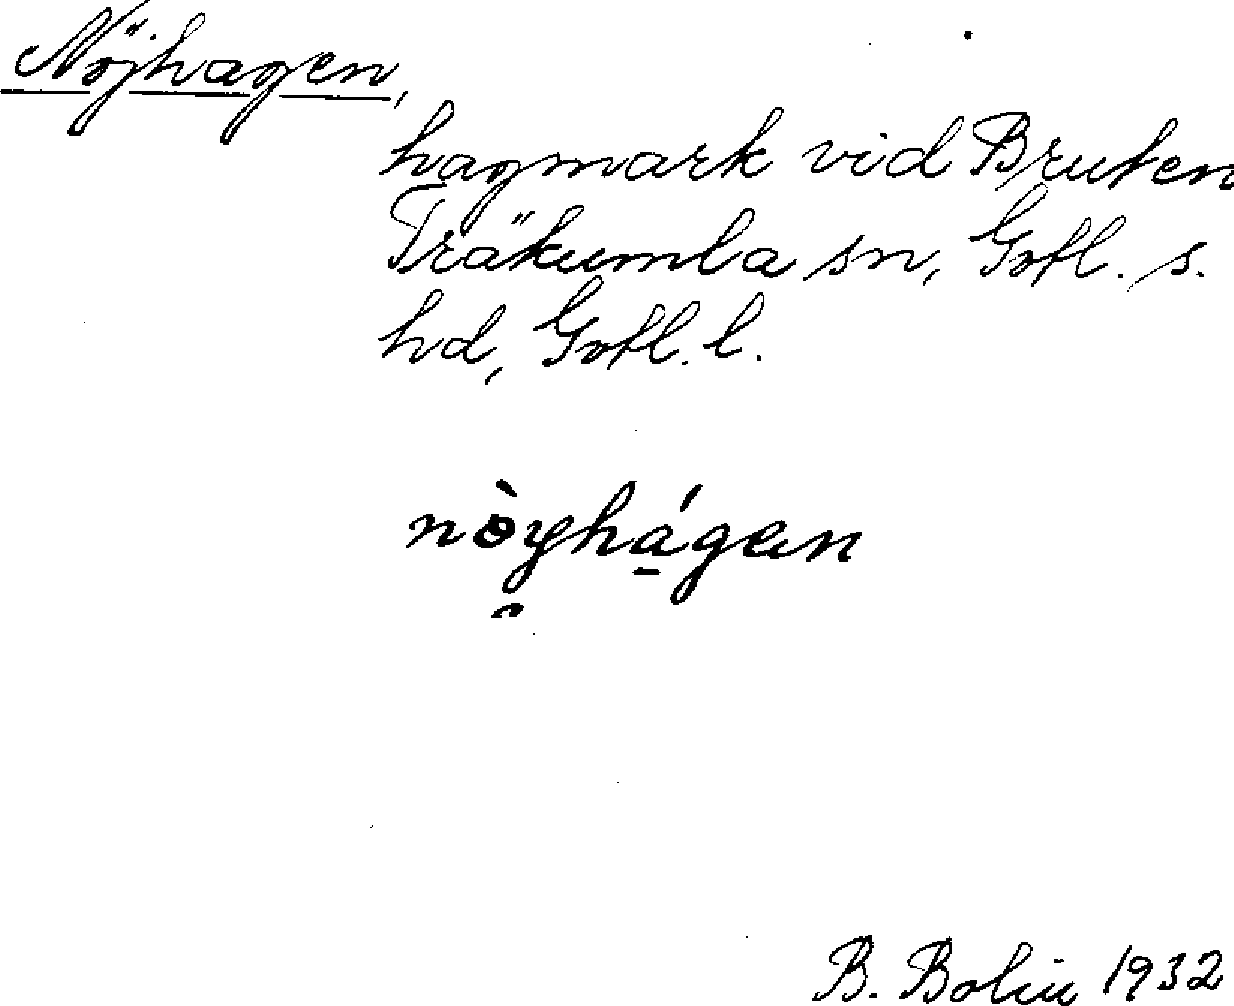 Nöjhagen,
hagmark vid Bruten
Träkumla sn, Gotl. s.
hd, Gotl. l.
nòyhá̱gan
B. Bolin 1932